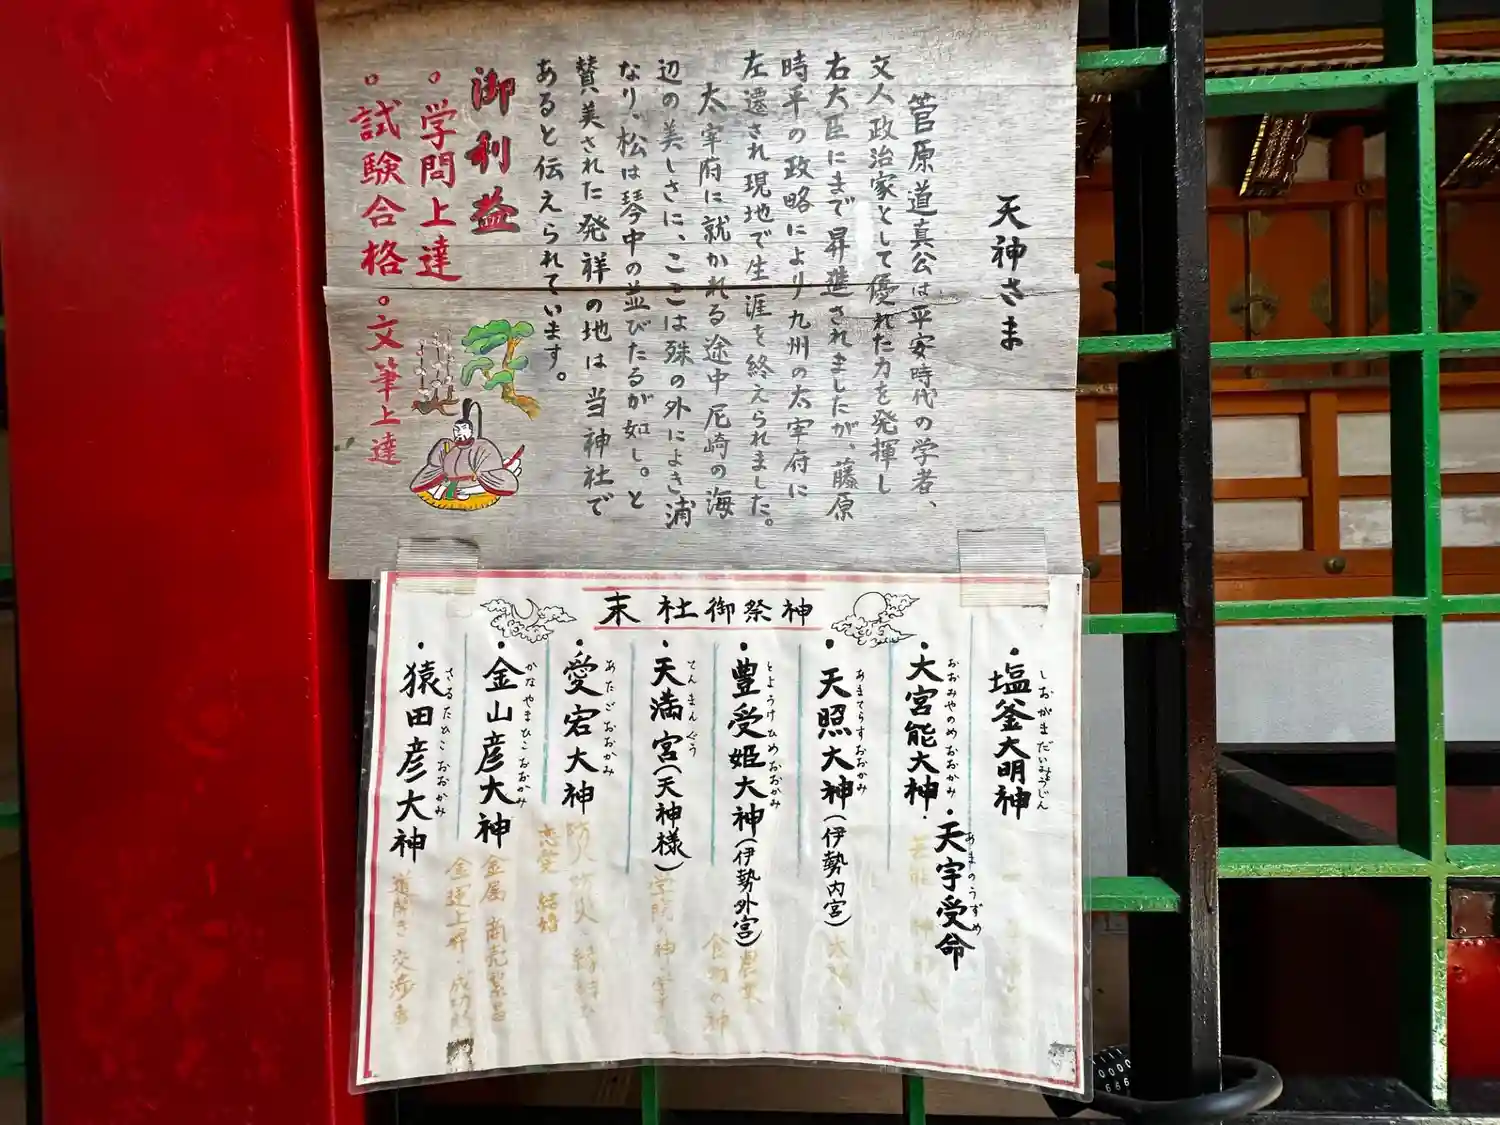 天神さま
菅原道真公は平安時代の学者、
文人政治家として優れた力を発揮し
右大臣にまで昇進されましたが、藤原
時平の政略により九州の太宰府に
左遷され現地で生涯を終えられました。
太宰府に就かれる途中尼崎の海
辺の美しさに、ここは殊の外によき浦
なり。松は琴中の並びたるが如し。と
賛美された発祥の地は当神社で
あると伝えられています。
御利益
。学問上達
。試験合格
。文筆上達
末社御祭神
・塩釜大明神
しおがまだいみょうじん
・大宮能大神
おおみやのめおおかみ
・天宇受命
あまのうずめ
・天照大神(伊勢内宮)
あまてらすおおかみ
・豊受姫大神(伊勢外宮)
とようけひめおおかみ
農業
食物の神
・天満宮(天神様)
てんまんぐう
・愛宕大神
あたごおおかみ
防火 防災 縁結び
恋愛 結婚
・金山彦大神
かなやまひこおおかみ
金属 商売繁昌
金運上昇・成功
・猿田彦大神
さるたひこおおかみ
道開き 交渉事